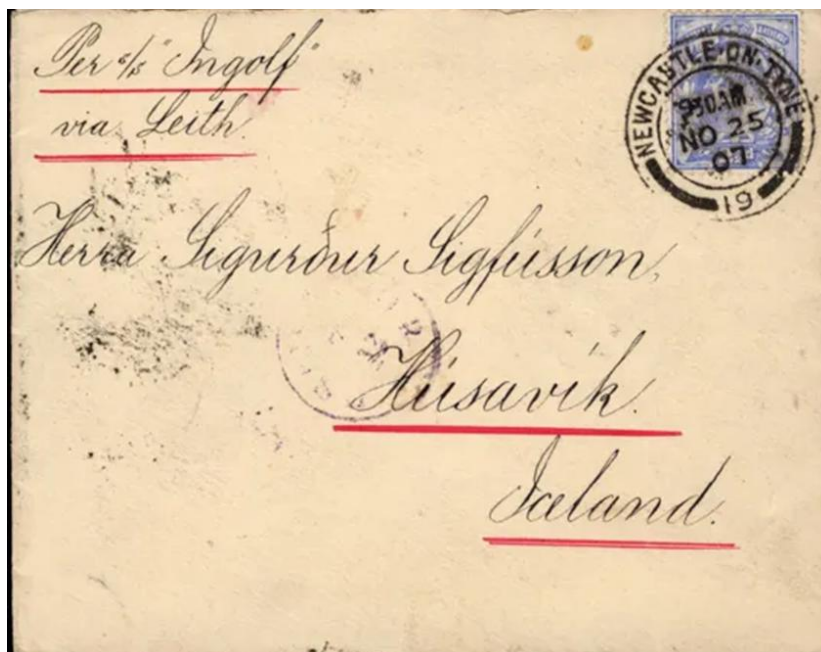 Per s/s "Ingolf"
via Leith.
NEWCASTLE·ON·TYNE
9 30AM
NO 25
07
19
Herra Sigurður Sigfússon,
Húsavík.
Iceland.